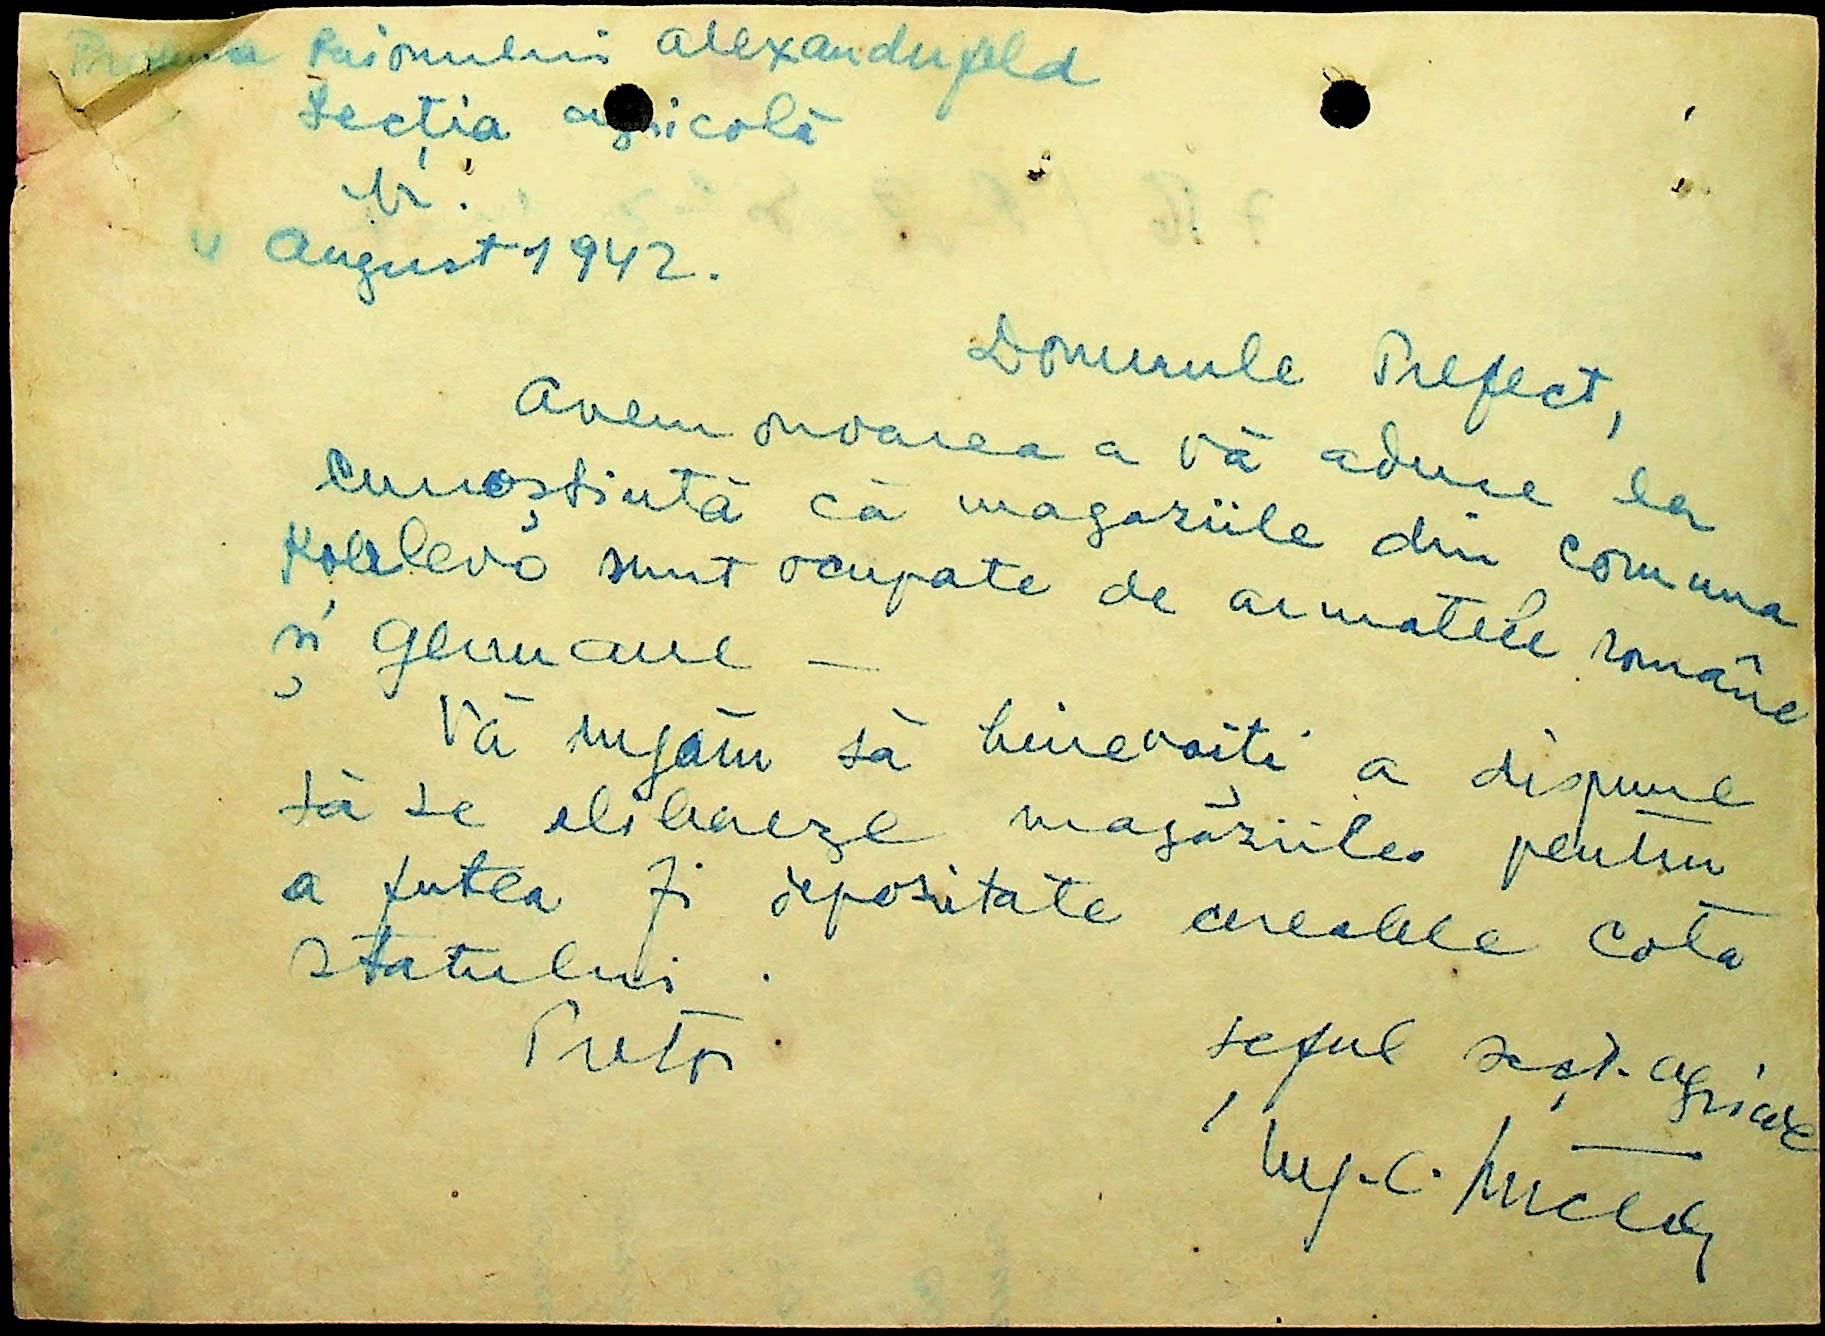 Pretura Raionului Alexanderfeld
Secția agricolă
Nr.
4 August 1942.
Domnule Prefect,
Avem onoarea a vă aduce la
cunoștință că magaziile din comuna
sunt ocupate de armatele române
și germane —
Vă rugăm să binevoiți a dispune
să se elibereze magaziile pentru
a putea fi depozitate cerealele cota
statului.
Pretor
Șeful secț. agricole
Ing. C.